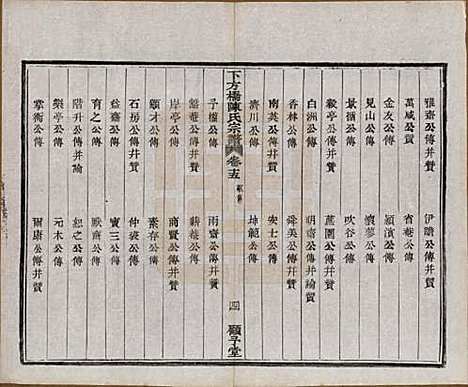 雅齋公傳并贊 伊瞻公傳并贊
萬咸公贊 省菴公傳
金友公傳 潁濱公傳
見山公傳 懷蓼公傳
景循公傳 吹谷公傳
毅亭公傳并贊 蕙圃公傳并贊
白洲公傳 明齋公傳并論贊
香林公傳 舜美公傳并贊
南英公傳并贊 安士公傳
濟川公傳 坤範公傳
下方橋陳氏宗譜 卷十五 四 願子堂
子樓公傳 雨齋公傳并贊
豁菴公傳并贊 蘄菴公傳
岸亭公傳 商賢公傳并贊
顧才公傳 素存公傳
石房公傳并贊 仲裘公傳
益齋公傳 寶三公傳
育之公傳 耿齋公傳
階升公傳并論 恕之公傳
樂亭公傳 元木公傳
掌衡公傳并贊 爾康公傳并贊